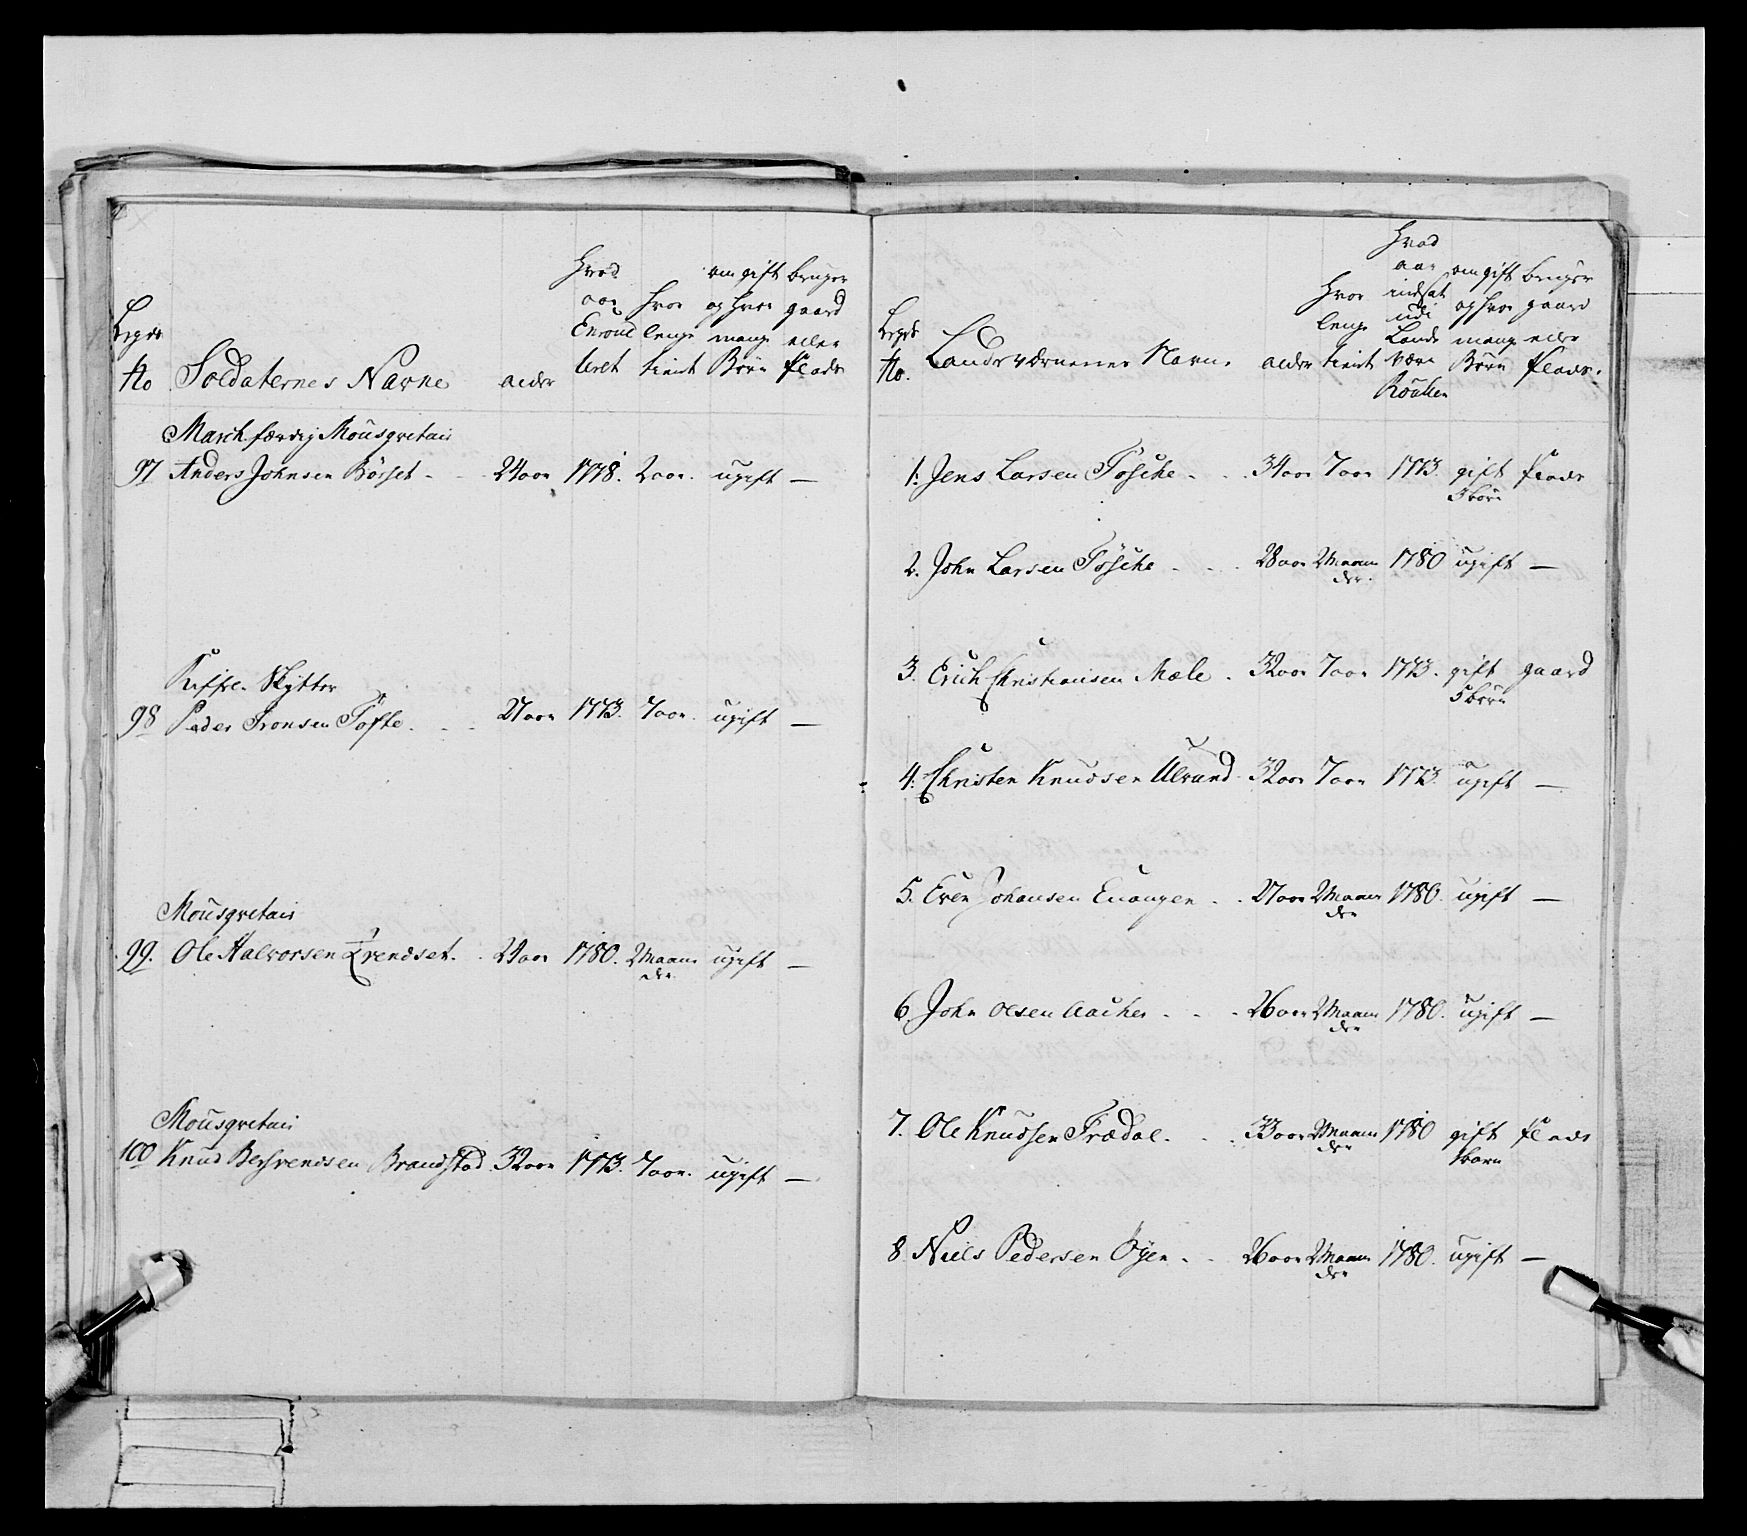 Legds No
Soldaternes Navne
alder
Hvad aar Enroulleret
hvor lenge tient
om gift og hvor mange Børn
bruger gaard eller Plads
March færdig Mousqvetair
97 Anders Johnsen Börset - 24 aar 1778. 2 aar. ugift —
Riffel Skÿtter
98 Peder Tronsen Töfte. 27 aar 1773. 7 aar. ugift —
Mousqvetair
99. Ole Halvorsen 1780. 2 Maaneder ugift —
Mousqvetair
100 Knud Bersvendsen Brandstad 32 aar 1773. 7 aar. ugift —
Legds No.
Landeværnernes Navn.
alder
Hvor lenge tient
Hvad aar indsat udi Lande Værn Roullen
om gift og hvor mange Børn
bruger gaard eller Plads.
1. Jens Larsen Tösche - 34 aar 7 aar 1773. gift Plads
3 børn
2. John Larsen Tösche - 28 aar 2 Maaneder 1780 ugift —
3. Erich Christiansen Mæle. 32 aar 7 aar 1773. gift gaard
5 børn
4. Christen Knudsen Ulvund. 32 aar 7 aar 1773. ugift —
5. Even Johansen Euangen. 27 aar 2 Maaneder 1780. ugift —
6. John Olsen Aacher. 26 aar 2 Maaneder 1780. ugift —
7. Ole Knudsen Trædal. 33 aar 2 Maaneder 1780 gift Plads
1 barn
8 Niels Pedersen Öÿen - 26 aar 2 Maaneder 1780. ugift —